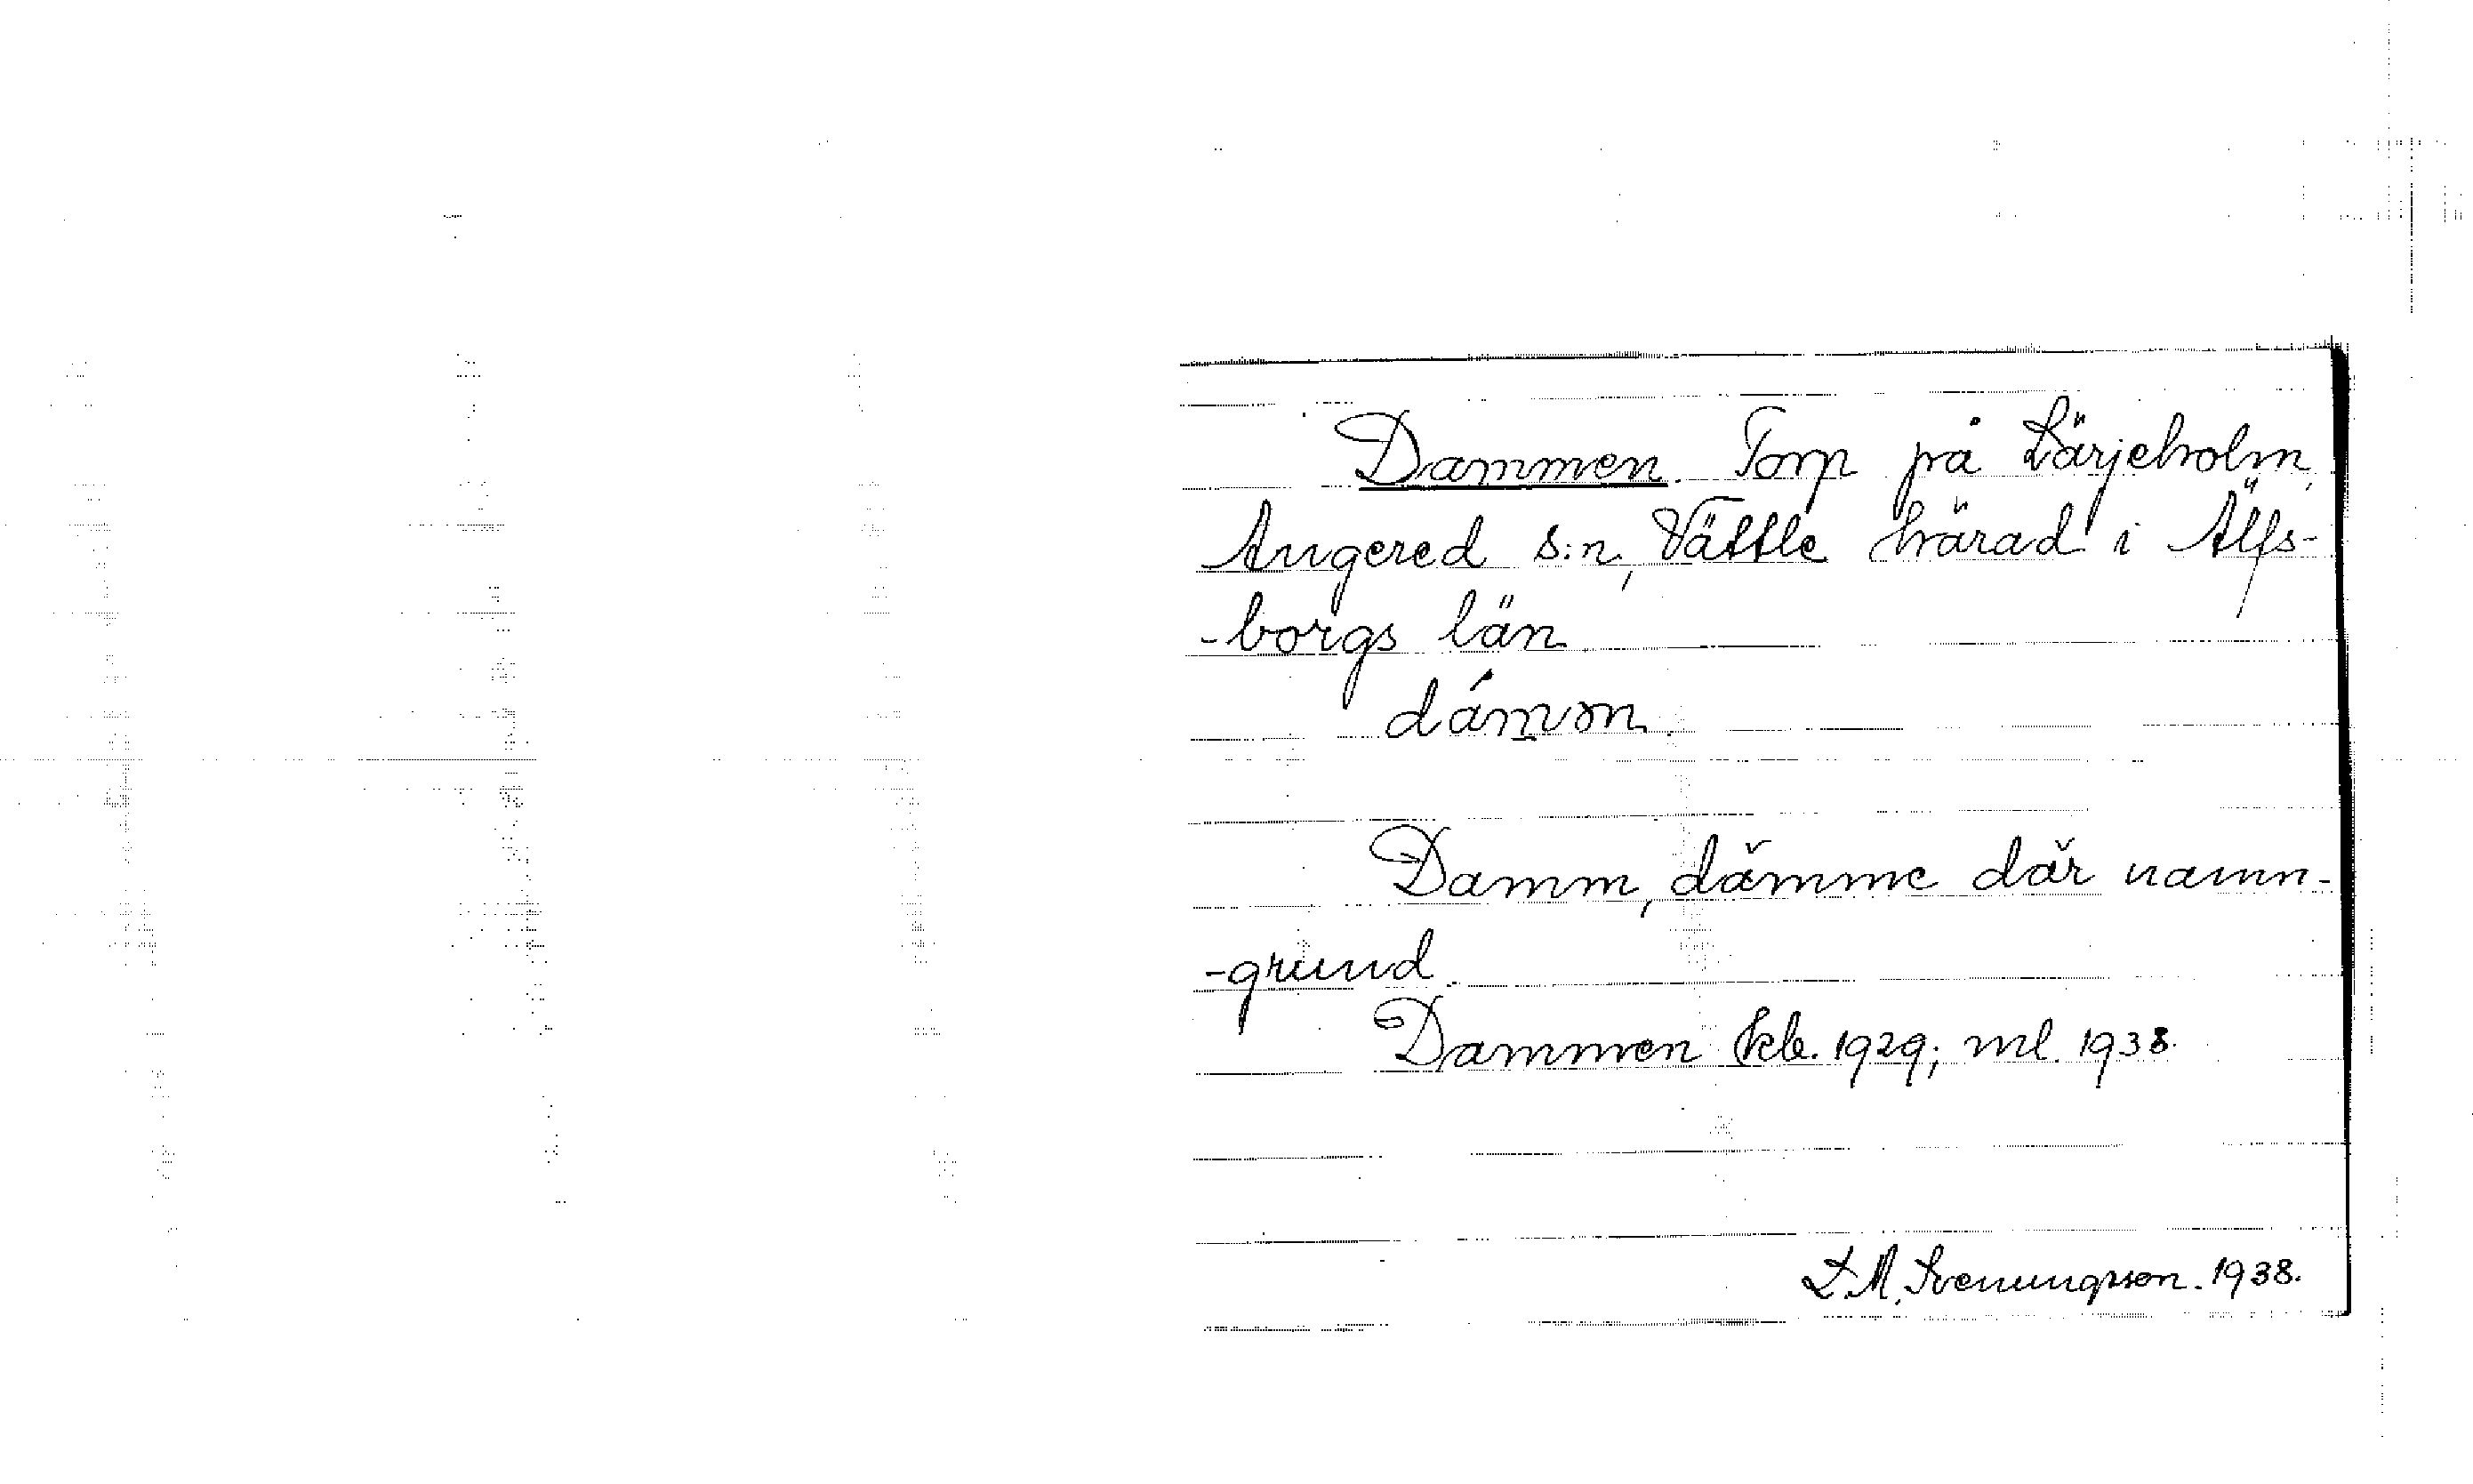 Dammen. Torp på Lärjeholm,
Angered s:n, Vättle härad i Älfs-
-borgs län.
Damm, dämme där namn-
-grund.
Dammen kb. 1929; ml. 1938.
L.M. Svenungsson. 1938.